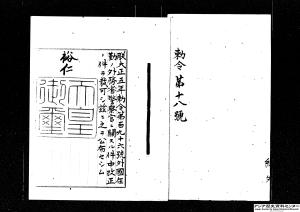 勅令第十八號
朕大正五年勅令第百九十六號外國在
勤ノ外務省警察官ニ關スル件中改正
ノ件ヲ裁可シ茲ニ之ヲ公布セシム
裕仁
天皇御璽
アジア歴史資料センター